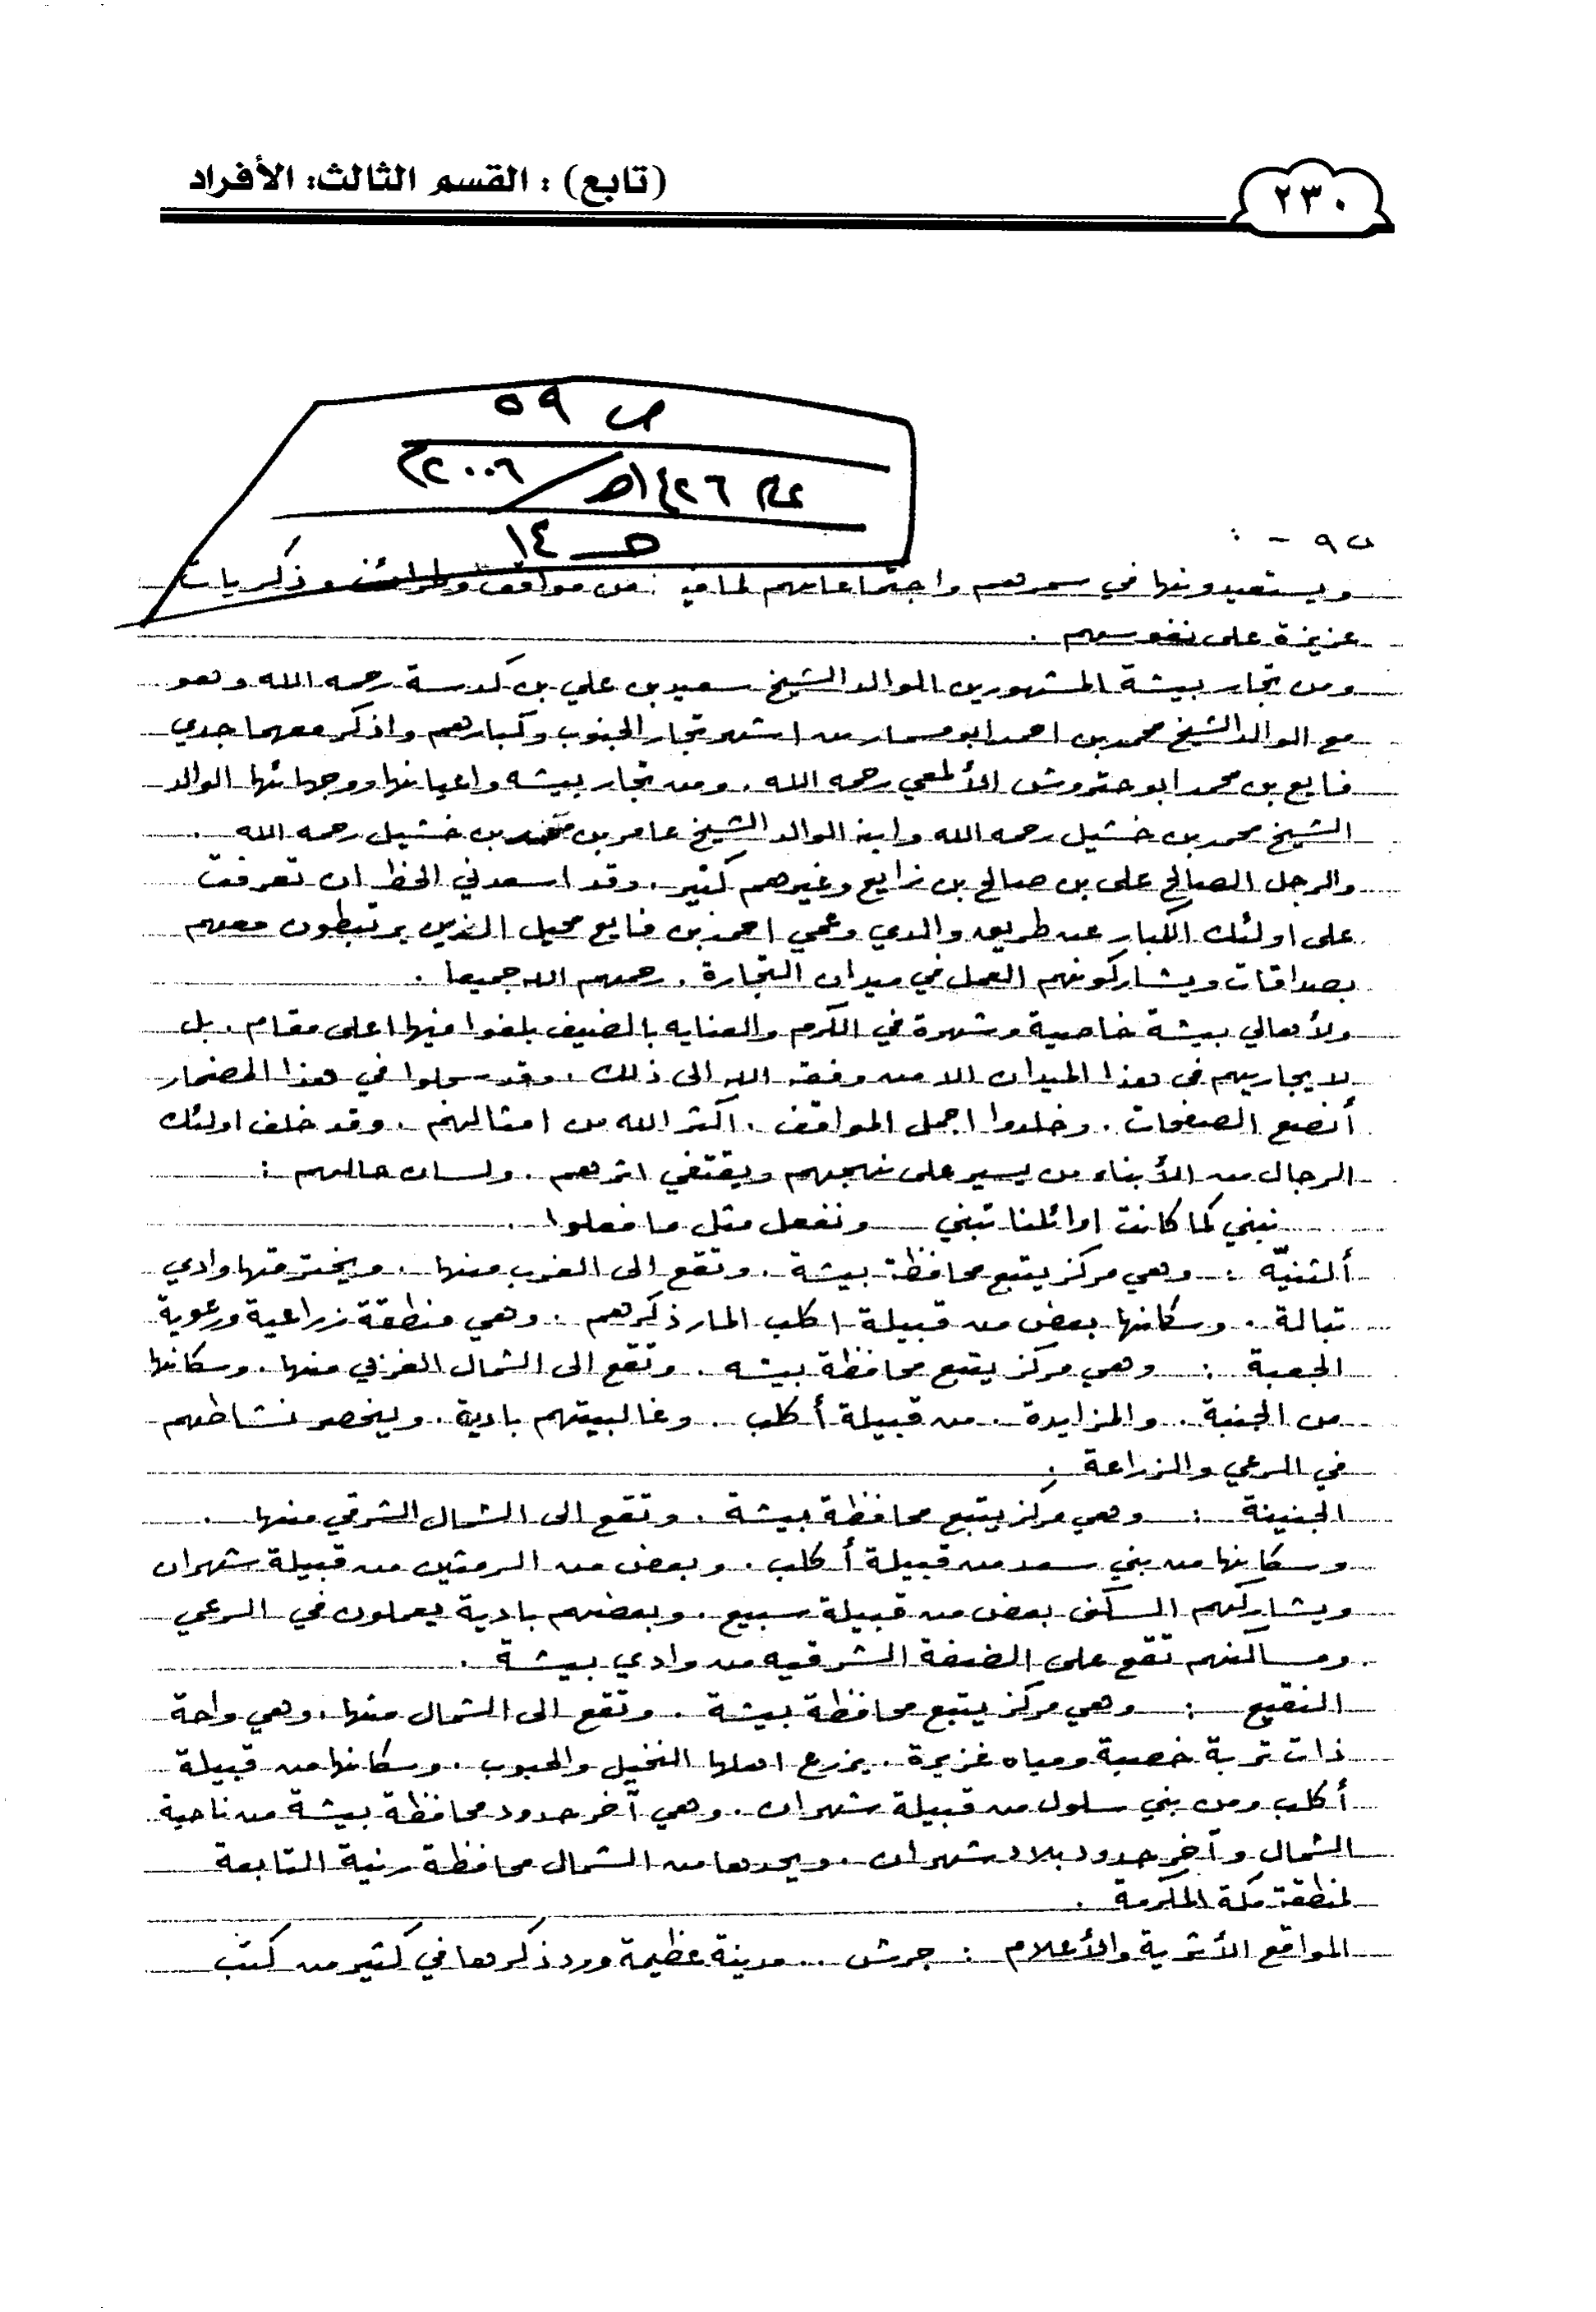 ٢٣٠
(تابع) : القسم الثالث: الأفراد
ص ٥٩
عام ١٤٢٦هـ / ٢٠٠٦م
صـ ١٤
ويستعيدونها في سمرهم واجتماعاتهم لما فيه من مواقف وطرائف وذكريات
عزيزة على نفوسهم .
ومن تجار بيشة المشهورين الوالد الشيخ سعيد بن علي بن كدسة رحمه الله وهو
مع الوالد الشيخ محمد بن احمد ابو مسمار من اشهر تجار الجنوب وكبارهم واذكر معهما جدي
فايع بن محمد ابو حتروش الألمعي رحمه الله . ومن تجار بيشه واعيانها ووجهائها الوالد
الشيخ محمد بن خشيل رحمه الله وابنه الوالد الشيخ عامر بن محمد بن خشيل رحمه الله .
والرجل الصالح علي بن صالح بن زايع وغيرهم كثير . وقد اسعدني الحظ ان تعرفت
على اولئك الكبار عن طريق والدي وعمي احمد بن فايع محيل الذين يرتبطون معهم
بصداقات ويشاركونهم العمل في ميدان التجارة . رحمهم الله جميعا .
ولأهالي بيشة خاصية وشهرة في الكرم والعنايه بالضيف بلغوا فيها اعلى مقام . بل
لا يجاريهم في هذا الميدان الا من وفقه الله الى ذلك . وقد سجلوا في هذا المضمار
أنصع الصفحات . وخلدوا اجمل المواقف . اكثر الله من امثالهم . وقد خلف اولئك
الرجال من الأبناء من يسير على نهجهم ويقتفي اثرهم . ولسان حالهم :
نبني كما كانت اوائلنا تبني ونفعل مثل ما فعلوا .
ألثنيّه : وهي مركز يتبع محافظة بيشة . وتقع الى الغرب منها . ويخترقها وادي
تبالة . وسكانها بعض من قبيلة اكلب المار ذكرهم . وهي منطقة زراعية ورعوية
الجعبة : وهي مركز يتبع محافظة بيشه . وتقع الى الشمال الغربي منها . وسكانها
من الجنبة . والمزايدة . من قبيلة أكلب . وغالبيتهم بادية . وينحصر نشاطهم
في الرعي والزراعة .
الجنينة : وهي مركز يتبع محافظة بيشة . وتقع الى الشمال الشرقي منها .
وسكانها من بني سعد من قبيلة أكلب . وبعض من الرمثين من قبيلة شهران
ويشاركهم السكن بعض من قبيلة سبيع . وبعضهم بادية يعملون في الرعي
ومساكنهم تقع على الضفة الشرقيه من وادي بيشة .
النقيع : وهي مركز يتبع محافظة بيشة . وتقع الى الشمال منها . وهي واحة
ذات تربة خصبة ومياه غزيرة . يزرع اهلها النخيل والحبوب . وسكانها من قبيلة
أكلب ومن بني سلول من قبيلة شهران . وهي آخر حدود محافظة بيشة من ناحية
الشمال وآخر حدود بلاد شهران . ويحدها من الشمال محافظة رنية التابعة
لمنطقة مكة المكرمة .
المواقع الأثرية والأعلام : جرش .. مدينة عظيمة ورد ذكرها في كثير من كتب